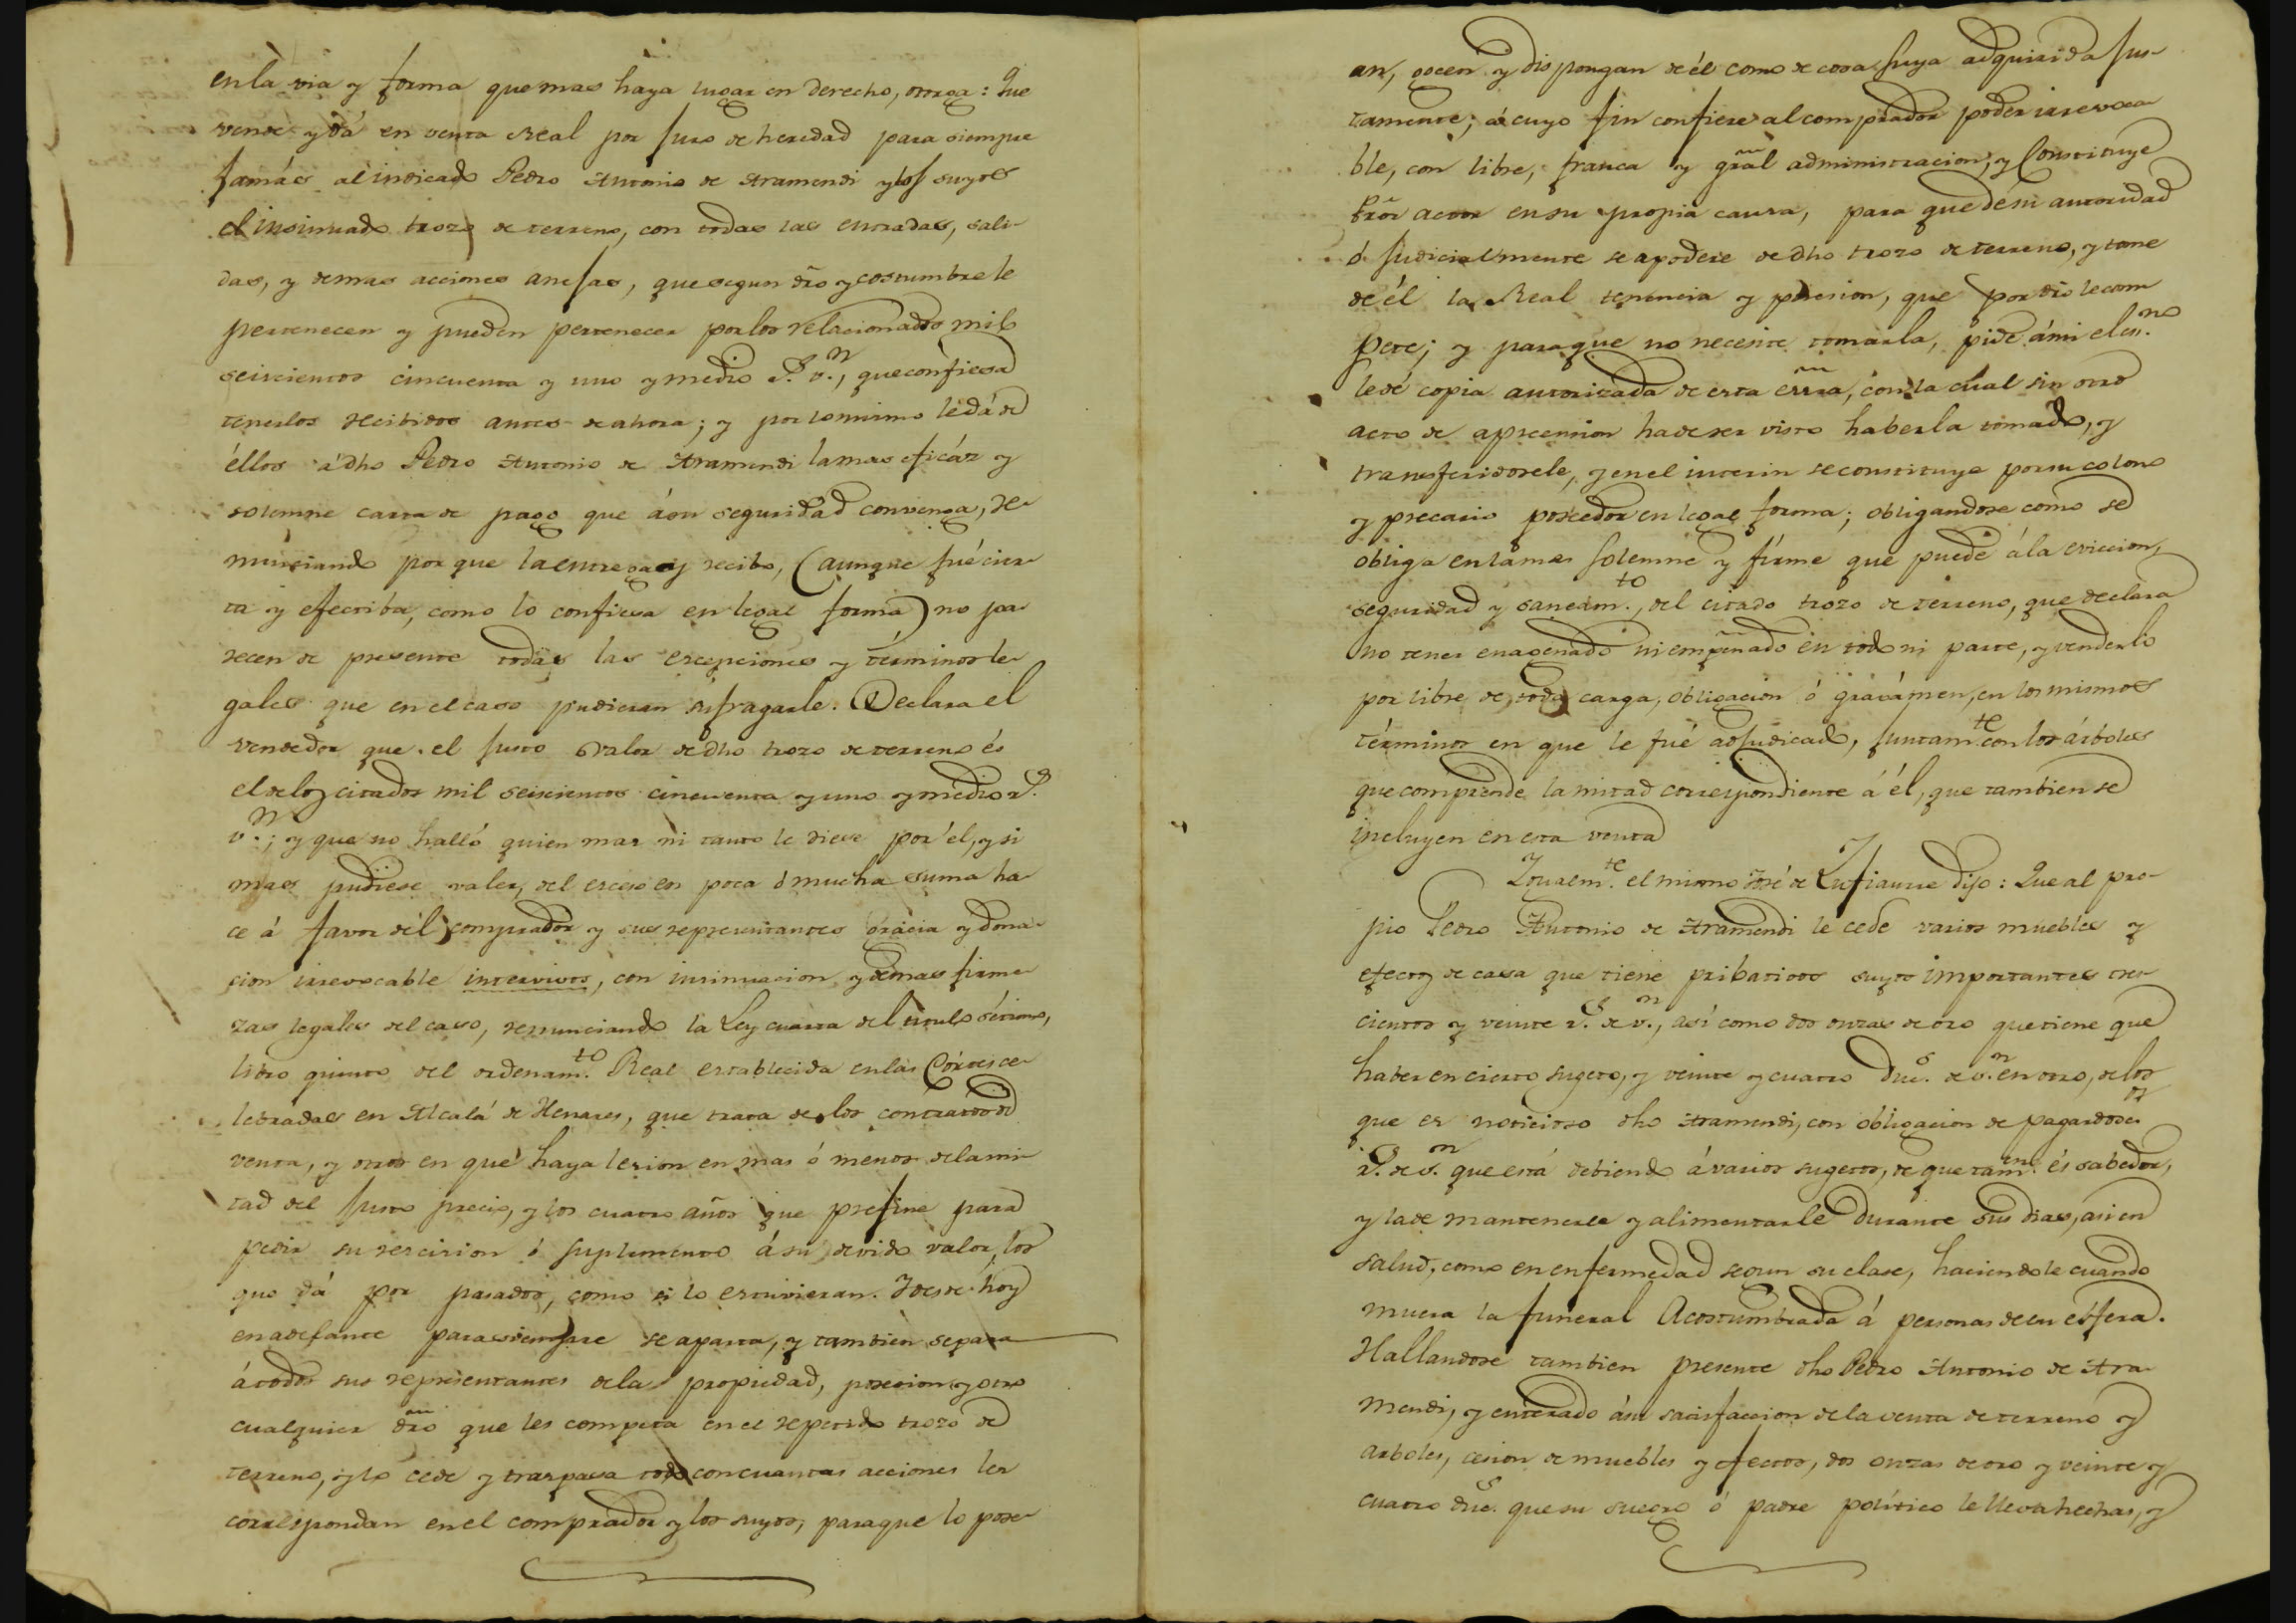 en la via y forma que mas haya lugar en derecho, otorga: Que
vende y dá en venta Real por juro de heredad para siempre
jamás al indicado Pedro Antonio de Aramendi y los suyos
el insinuado trozo de terreno, con todas las entradas, sali-
das, y demas acciones anejas, que segun dro y costumbre le
pertenecen y pueden pertenecer por los relacionados mil
seiscientos cincuenta y uno y medio r.s v.n, que confiesa
tenerlos recibidos antes de ahora; y por lo mismo le dá de
éllos á dho Pedro Antonio de Aramendi la mas eficáz y
solemne carta de pago que á su seguridad convenga, re-
nunciando por que la entrega y recibo, (aunque fué cier-
ta y efectiba, como lo confiesa en legal forma) no pa-
recen de presente todas las excepciones y términos le-
gales que en el caso pudieran sufragarle. Declara el
vendedor que el justo valor de dho trozo de terreno és
el de los citados mil seiscientos cincuenta y uno y medio r.s
v.n; y que no halló quien mas ni tanto le diese por él, y si
mas pudiese valer, del exceso en poca ó mucha suma ha-
ce á favor dél comprador y sus representantes gracia y dona-
cion irrevocable intervivos, con insinuacion y demas firme-
zas legales del caso, renunciando la Ley cuarta del titulo sétimo,
libro quinto del ordenam.to Real establecida en las Córtes ce-
lebradas en Alcalá de Henares, que trata de los contratos de
venta, y otros en que haya lesion en mas ó menos de la mi-
tad del justo precio, y los cuatro años que prefine para
pedir su rescision ó suplemento á su devido valor, los
que dá por pasados, como si lo estuvieran. Y desde hoy
en adelante para siempre se aparta, y tambien separa
á todos sus representantes de la propiedad, posesion y otro
cualquier dro que les competa en el repetido trozo de
terreno, y lo cede y traspasa todo con cuantas acciones les
correspondan en el comprador y los suyos, para que lo pose-
an, gocen y dispongan de él como de cosa suya adquirida jus-
tamente; á cuyo fin confiere al comprador poder irrevoca-
ble, con libre, franca y gral administracion, y Constituye
Prõr actor en su propia causa, para que de su autoridad
ó judicialmente se apodere de dho trozo de terreno, y tome
de él la Real tenencia y posesion, que por dro le com-
pete; y para que no necesite tomarla, pide á mi el es.no
le dé copia autorizada de esta essra, con la cual sin otro
acto de aprension ha de ser visto haberla tomado, y
transferidosele, y en el interin se constituye por su colono
y precario poseedor en legal forma; obligandose como se
obliga en la mas solemne y firme que puede á la eviccion,
seguridad y saneam.to, del citado trozo de terreno, que declara
no tener enagenado ni empeñado en todo ni parte, y venderlo
por libre de toda carga, obligacion ó gravámen, en los mismos
términos en que le fué adjudicado, juntam.te con los árboles
que comprende la mitad correspondiente á él, que tambien se
incluyen en esta venta
Igualm.te el mismo José de dijo: Que al pro-
pio Pedro Antonio de Aramendi le cede varios muebles y
efectos de casa que tiene pribatibos suyos importantes tres-
cientos y veinte r.s de v.n, así como dos onzas de oro que tiene que
haber en cierto sugeto, y veinte y cuatro duc.s de v.n en otro, de los
que es noticioso dho Aramendi, con obligacion de pagar
r.s de v.n que está debiendo á varios sugetos, de que tam.en és sabedor,
y la de mantenerle y alimentarle durante sus dias, asi en
salud, como en enfermedad segun su clase, haciendole cuando
muera la funeral Acostumbrada á personas de su esfera.
Hallandose tambien presente dho Pedro Antonio de Ara-
mendi, y enterado á su satisfaccion de la venta de terreno y
arboles, cesion de muebles y efectos, dos onzas de oro y veinte y
cuatro duc.s que su suegro ó padre político le lleva hechas, y